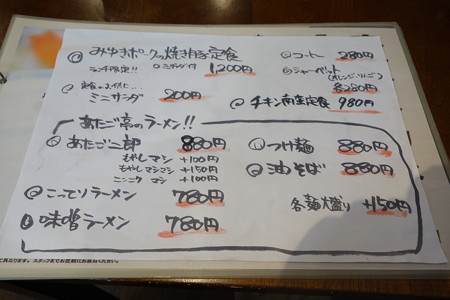 みゆきポークの焼き豚定食
ランチ限定!! ミニサラダ付 1,200円
定食のお供に…
ミニサラダ 200円
コーヒー 280円
シャーベット
(オレンジ・りんご)
各280円
チキン南蛮定食 980円
あたご亭のラーメン!!
あたご二郎 880円
もやし マシ +100円
もやし マシマシ +150円
ニンニク マシ +100円
こってりラーメン 780円
味噌ラーメン 780円
つけ麺 880円
油そば 880円
各麺大盛り +150円
て異なります。スタッフまでお気軽にお尋ねください。